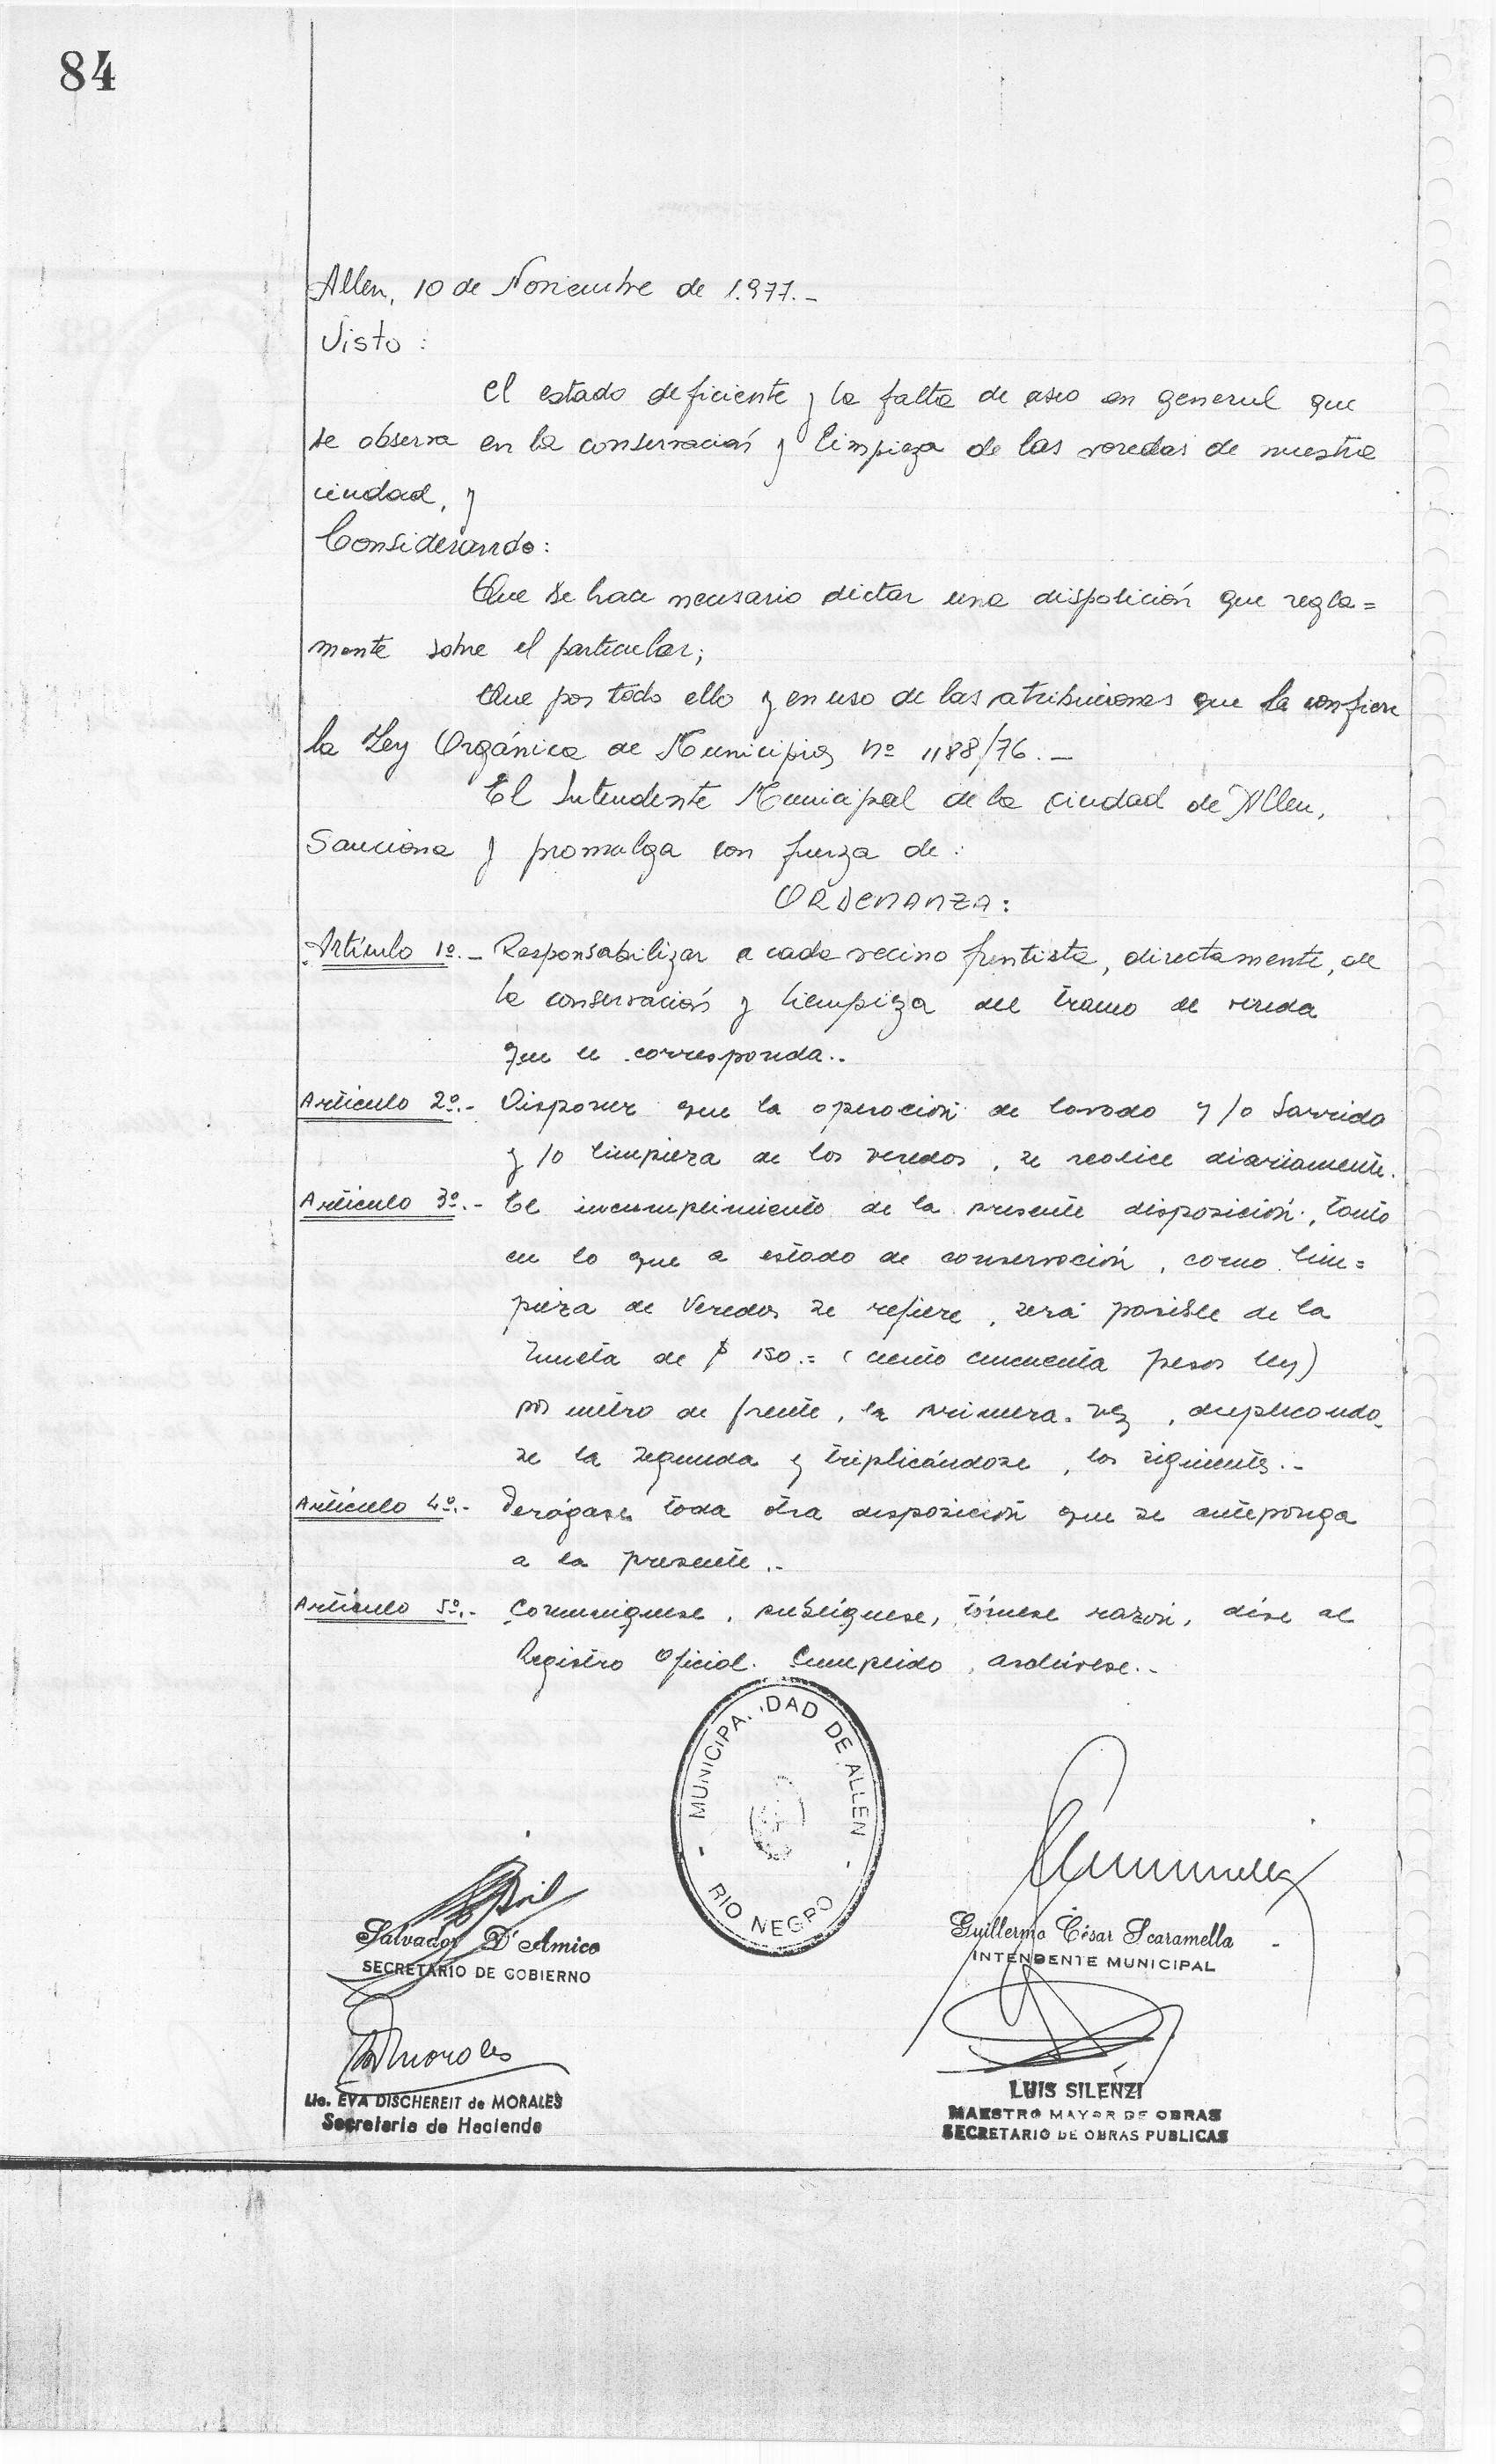 84
Allen, 10 de Noviembre de 1.977.-
Visto :
El estado deficiente y la falta de aseo en general que
se observa en la conservación y limpieza de las veredas de nuestra
ciudad, y
Considerando:
Que se hace necesario dictar una disposición que regla=
mente sobre el particular;
Que por todo ello y en uso de las atribuciones que le confiere
la Ley Orgánica de Municipios nº 1188/76.-
El Intendente Municipal de la ciudad de Allen,
Sanciona y promulga con fuerza de :
ORDENANZA:
Artículo 1º.- Responsabilizar a cada vecino frentista, directamente, de
la conservación y limpieza del tramo de vereda
que le corresponda..
Artículo 2º.- Disponer que la operación de lavado y/o barrido
y/o limpieza de las veredas, se realice diariamente.
Artículo 3º.- El incumplimiento de la presente disposición, tanto
en lo que a estado de conservación, como lim=
pieza de veredas se refiere, será pasible de la
multa de $ 150.= (ciento cincuenta pesos ley)
por metro de frente, la primera vez, duplicando-
se la segunda y triplicándose, las siguientes.-
Artículo 4º.- Derógase toda otra disposición que se anteponga
a la presente.-
Artículo 5º.- Comuníquese, publíquese, tómese razón, dése al
Registro Oficial. Cumplido, archívese.-
MUNICIPA. .DAD DE ALLEN
- RIO NEGRO -
Salvador D'Amico
SECRETARIO DE GOBIERNO
Guillermo César Scaramella
INTENDENTE MUNICIPAL
Lic. EVA DISCHEREIT de MORALES
Secretaria de Hacienda
LUIS SILENZI
MAESTRO MAYOR DE OBRAS
SECRETARIO DE OBRAS PUBLICAS